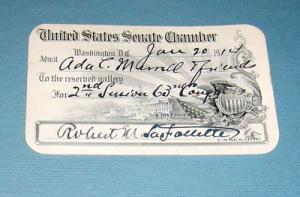 United States Senate Chamber
Washington D.C. Jan 20 1914
Admit Ada C. Merrell & friend
To the reserved gallery
For 2nd Session 63rd Congress
Robert M. La Follette
U.S. SENATOR